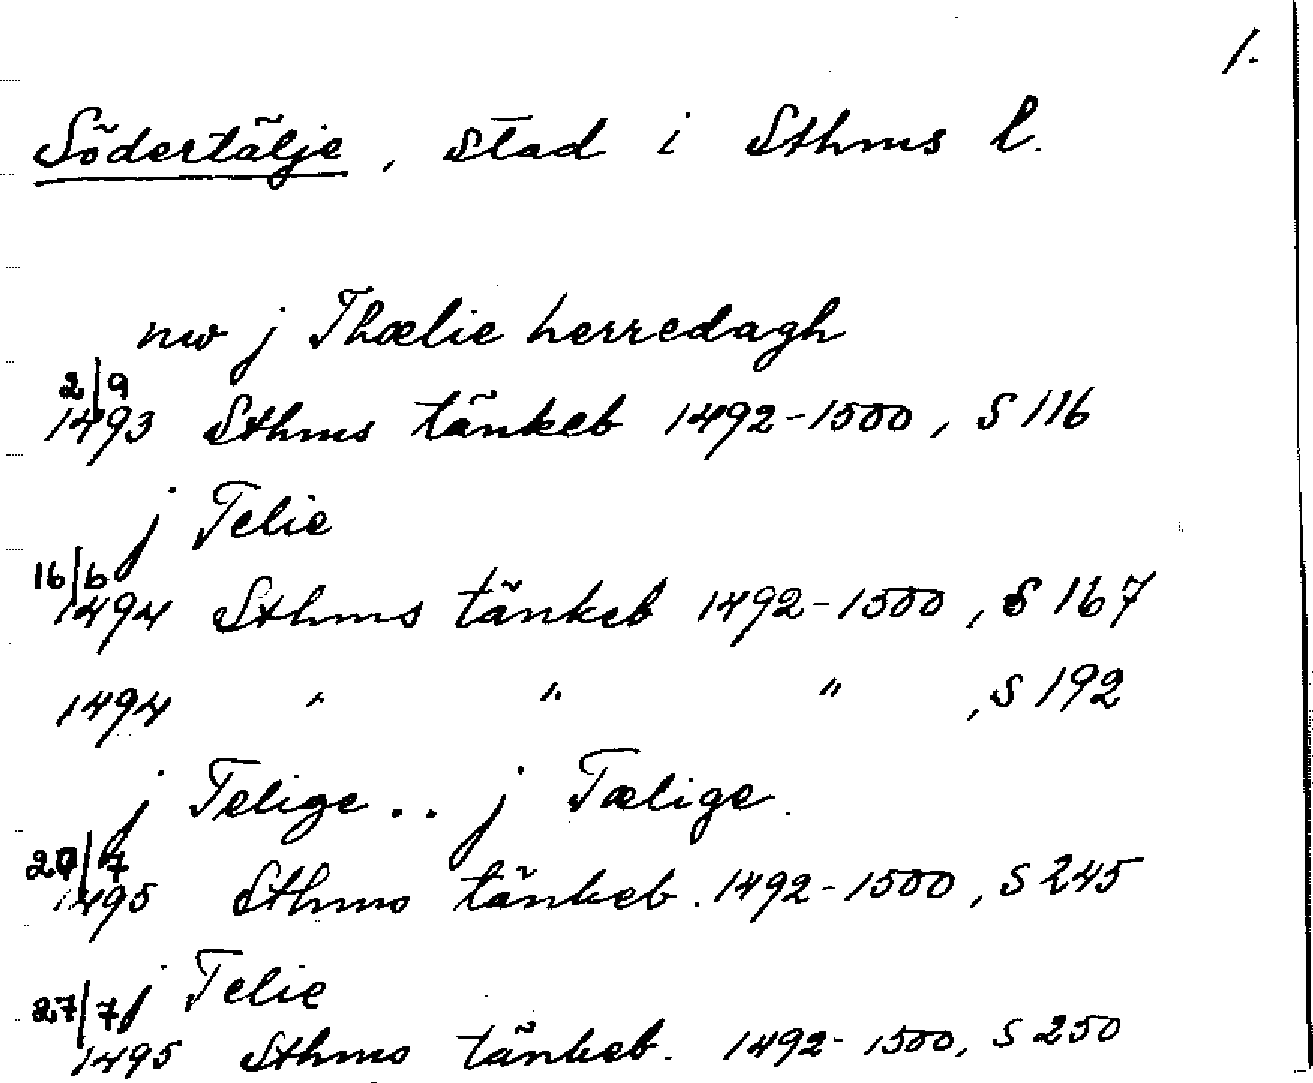 1.
Södertälje, stad i Sthms l.
nw j Thælie herredagh
2/9
1493 Sthms tänkeb 1492-1500, S 116
j Telie
16/6
1494 Sthms tänkeb 1492-1500, S 167
1494 " " " , S 192
j Telige .. j Tælige.
20/7
1495 Sthms tänkeb. 1492-1500, S 245
j Telie
27/7
1495 Sthms tänkeb. 1492-1500, S 250